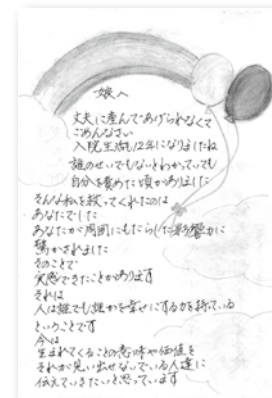 娘へ
丈夫に産んであげられなくて
ごめんなさい
入院生活も12年になりましたね
誰のせいでもないとわかっていても
自分を責めた頃がありました
そんな私を救ってくれたのは
あなたでした
あなたが周囲にもたらした影響力に
驚かされました
そのことで
実感できたことがあります
それは
人は誰でも誰かを幸せにする力を持っている
ということです
今は
生まれてくることの意味や価値を
それが見い出せないでいる人達に
伝えていきたいと思っています